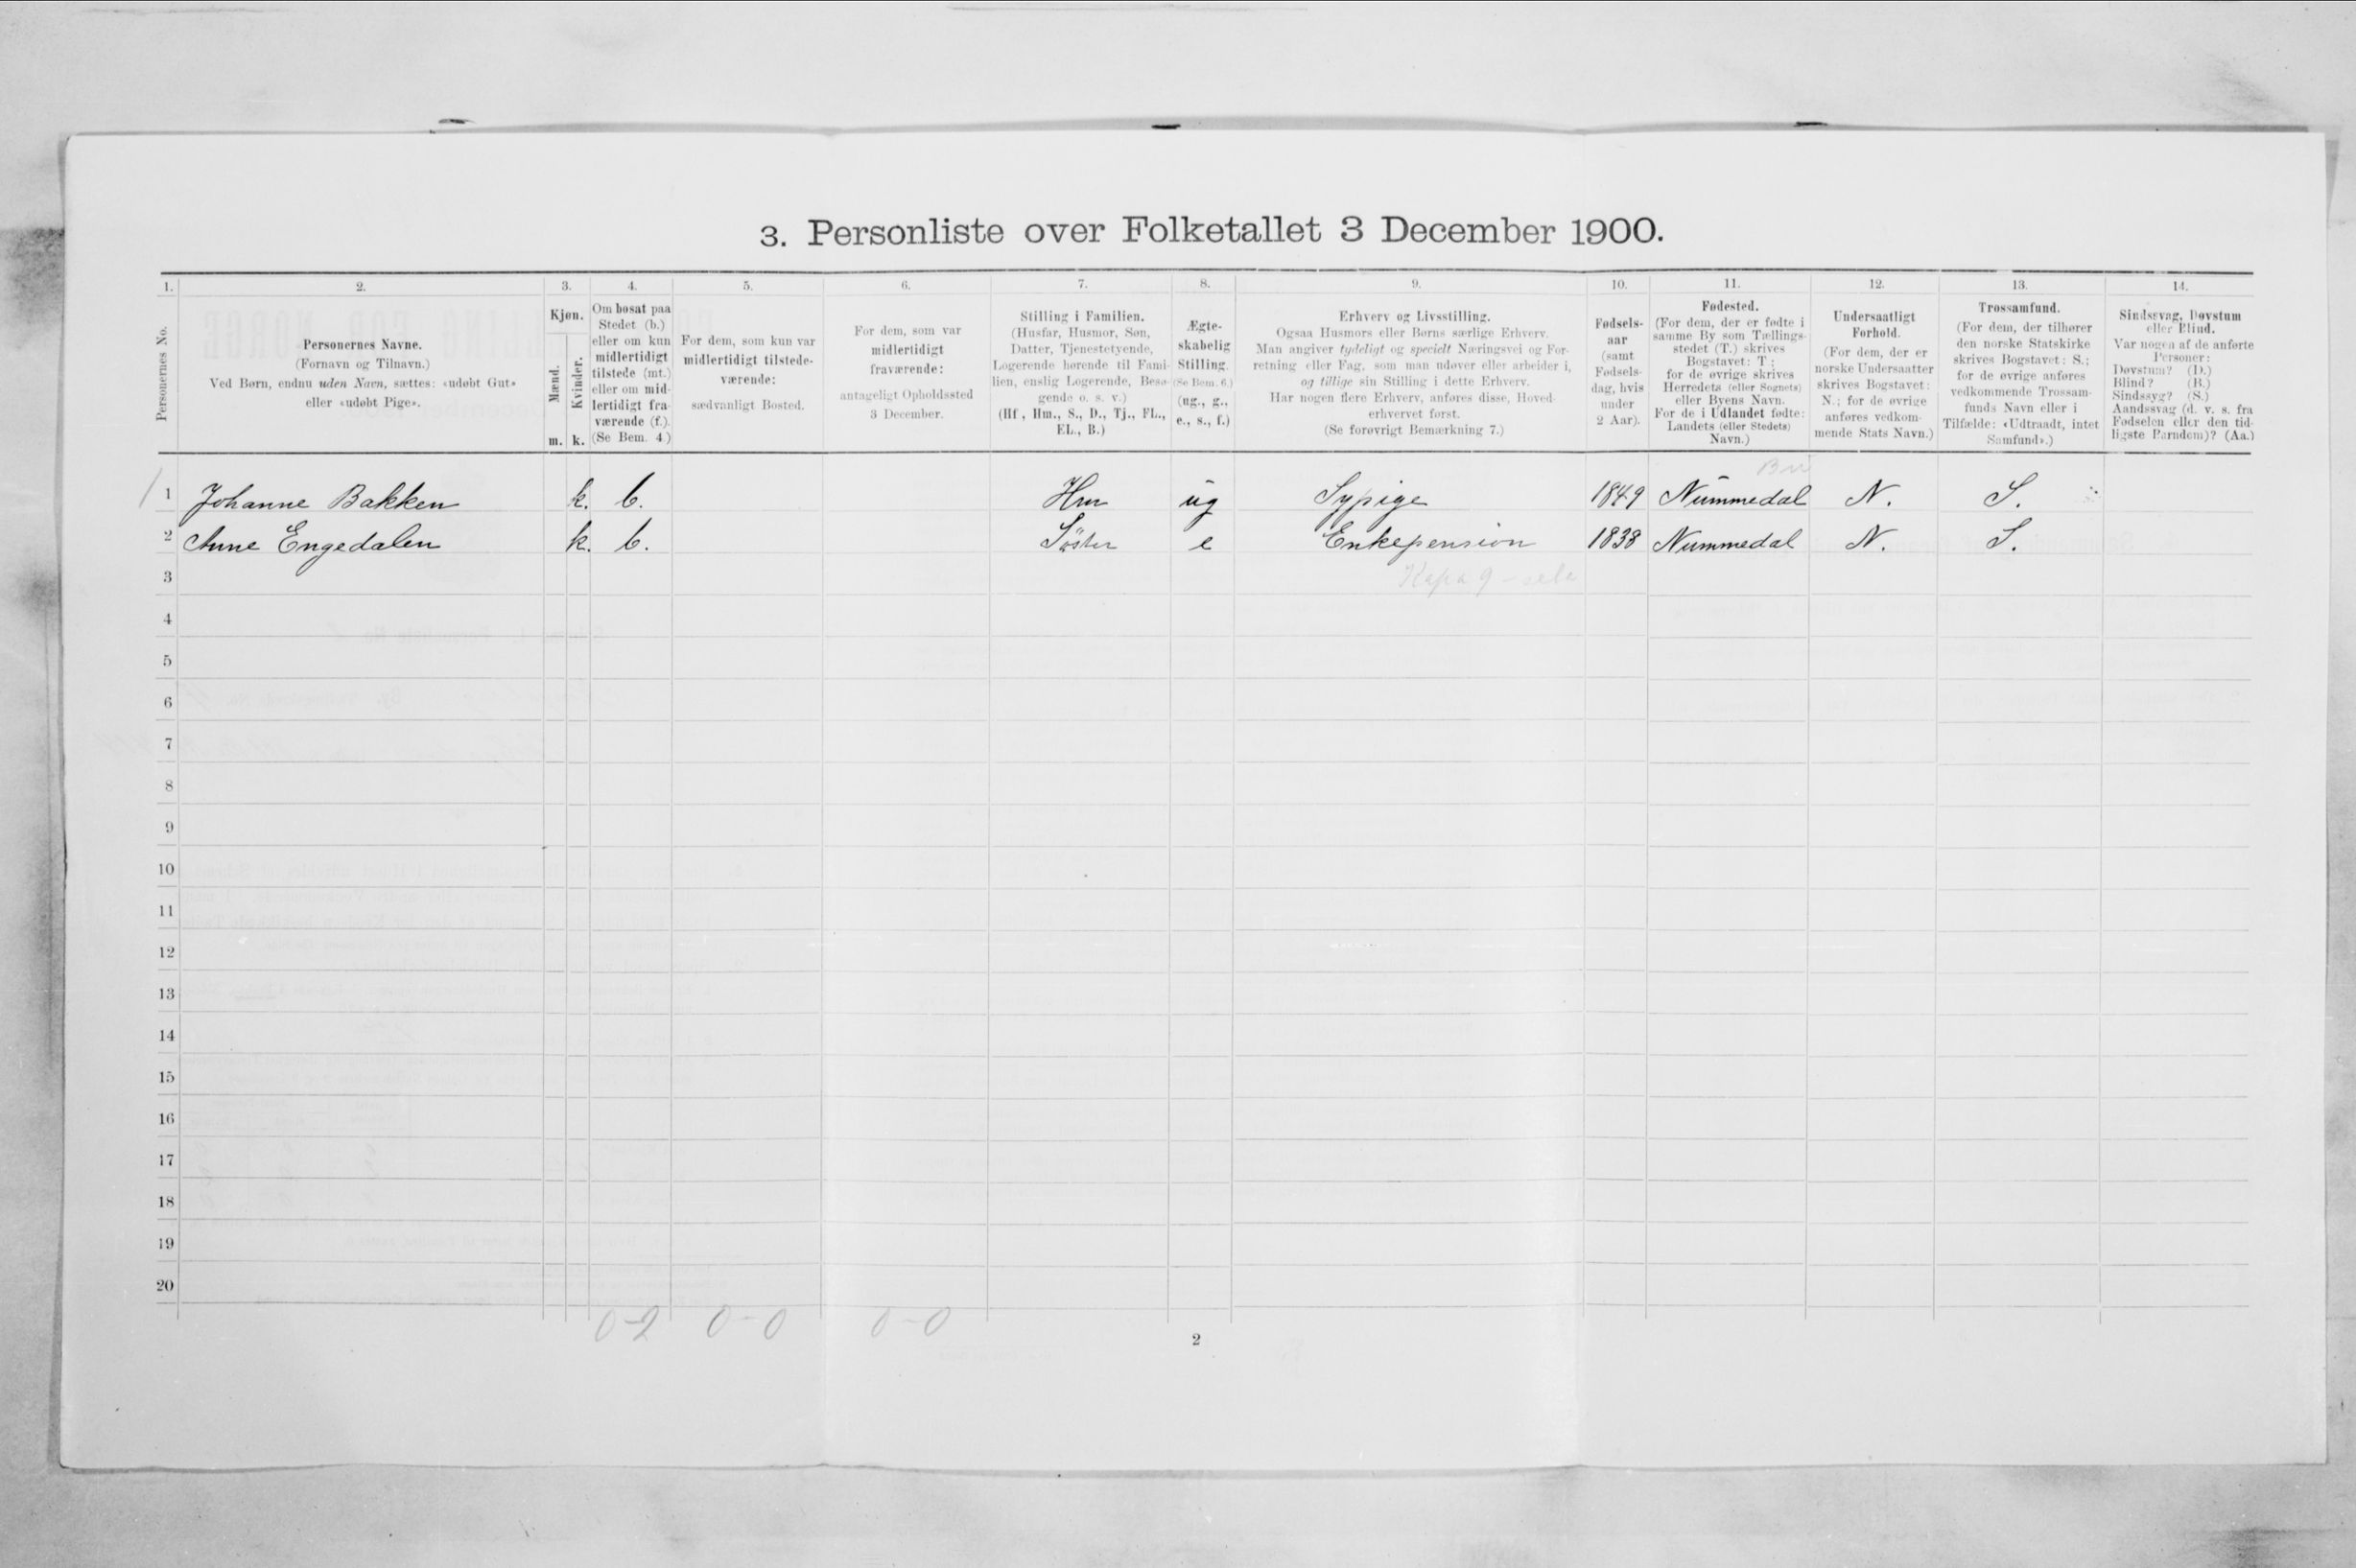 3. Personliste over Folketallet 3 December 1900.
1. 2. 3. 4. 5. 6. 7. 8. 9. 10. 11. 12. 13. 14.
Personernes No.
Personernes Navne.
(Fornavn og Tilnavn.)
Ved Børn, endnu uden Navn, sættes: «udøbt Gut»
eller «udøbt Pige».
Kjøn.
Mænd.
Kvinder.
m. k.
Om bosat paa
Stedet (b.)
eller om kun
midlertidigt
tilstede (mt.)
eller om mid-
lertidigt fra-
værende (f.).
(Se Bem. 4.)
For dem, som kun var
midlertidigt tilstede-
værende:
sædvanligt Bosted.
For dem, som var
midlertidigt
fraværende:
antageligt Opholdssted
3 December.
Stilling i Familien.
(Husfar, Husmor, Søn,
Datter, Tjenestetyende,
Logerende hørende til Fami-
lien, enslig Logerende, Besø-
gende o. s. v.)
(Hf., Hm., S., D., Tj., FL.,
EL., B.)
Ægte-
skabelig
Stilling.
(Se Bem. 6.)
(ug., g.,
e., s., f.)
Erhverv og Livsstilling.
Ogsaa Husmors eller Børns særlige Erhverv.
Man angiver tydeligt og specielt Næringsvei og For-
retning eller Fag, som man udøver eller arbeider i,
og tillige sin Stilling i dette Erhverv.
Har nogen flere Erhverv, anføres disse, Hoved-
erhvervet først.
(Se forøvrigt Bemærkning 7.)
Fødsels-
aar
(samt
Fødsels-
dag, hvis
under
2 Aar).
Fødested.
(For dem, der er fødte i
samme By som Tællings-
stedet (T.) skrives
Bogstavet: T;
for de øvrige skrives
Herredets (eller Sognets)
eller Byens Navn.
For de i Udlandet fødte:
Landets (eller Stedets)
Navn.)
Undersaatligt
Forhold.
(For dem, der er
norske Undersaatter
skrives Bogstavet:
N.; for de øvrige
anføres vedkom-
mende Stats Navn.)
Trossamfund.
(For dem, der tilhører
den norske Statskirke
skrives Bogstavet: S.;
for de øvrige anføres
vedkommende Trossam-
funds Navn eller i
Tilfælde: «Udtraadt, intet
Samfund».)
Sindssvag, Døvstum
eller Blind.
Var nogen af de anførte
Personer:
Døvstum? (D.)
Blind? (B.)
Sindssyg? (S.)
Aandssvag (d. v. s. fra
Fødselen eller den tid-
ligste Barndom)? (Aa.)
1 Johanne Bakken k. b. Hm ug Sypige 1849 Nummedal N. S.
2 Anne Engedalen k. b. Söster e Enkepension 1838 Nummedal N. S.
3
4
5
6
7
8
9
10
11
12
13
14
15
16
17
18
19
20
0-2 0-0 0-0
2